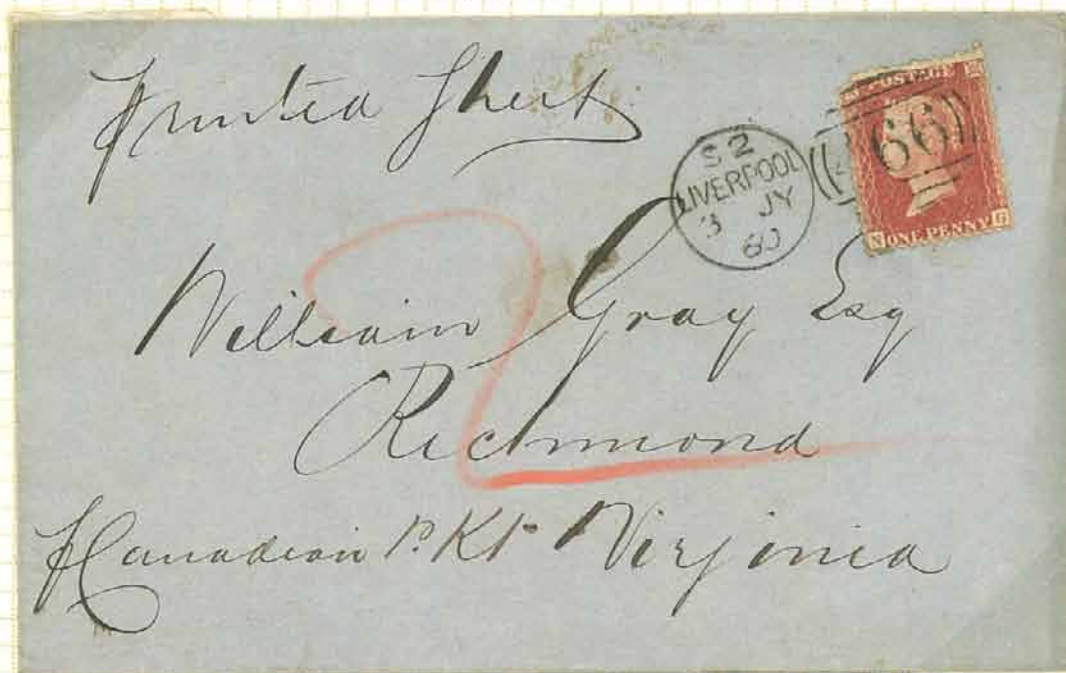 Printed Sheet
S 2
LIVERPOOL
3 JY
60
466
POSTAGE
N ONE PENNY G
2
William Gray Esq
Richmond
Virginia
p Canadian P. Kt